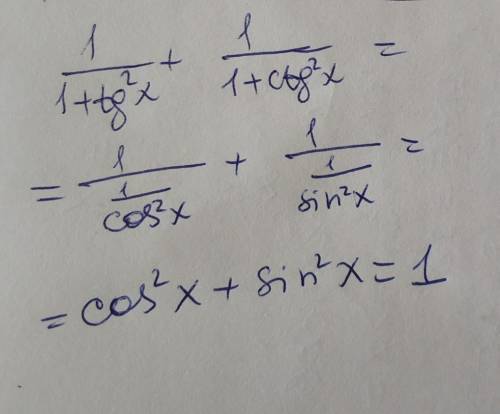 1/(1+tg²x) + 1/(1+ctg²x) =
= 1/(1/cos²x) + 1/(1/sin²x) =
= cos²x + sin²x = 1